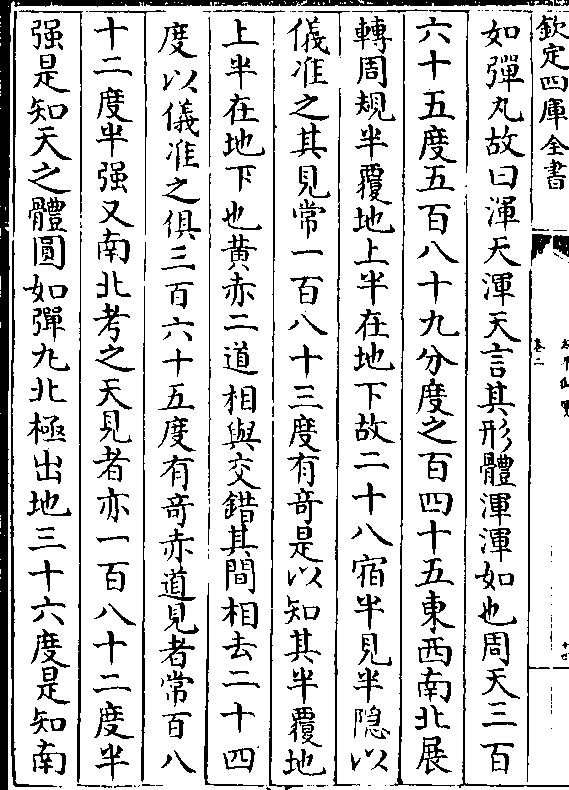 欽定四庫全書
卷二
如彈丸故曰渾天渾天言其形體渾渾如也周天三百
六十五度五百八十九分度之百四十五東西南北展
轉周規半覆地上半在地下故二十八宿半見半隱以
儀准之其見常一百八十三度有竒是以知其半覆地
上半在地下也黄赤二道相與交錯其間相去二十四
度以儀准之俱三百六十五度有竒赤道見者常百八
十二度半强又南北考之天見者亦一百八十二度半
强是知天之體圓如彈丸北極出地三十六度是知南